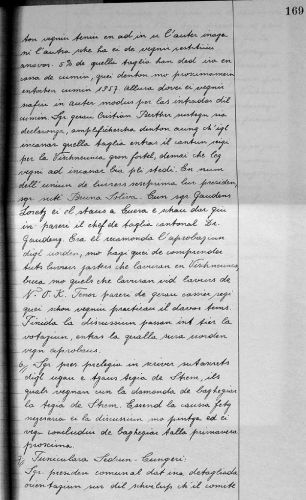 169
ton vegnir teniu en ad in u l'auter maga
ni l'autra che ha ei de vegnir restituiu
anavos. 5% de quella taglia han deد ira en
cassa de cumin, quei denton mo proximamein
entochen cumin 1957. Allura dovei ei vegnir
safiu in auter modus per las entradas dil
cumin. Sgr. geran Cristian Berther sustegn sia
declaronza, amplifichescha denton aung ch'igl
incassar quella taglia entras il cantun
per la Vischnaunca, gron fortel, demai che lez
vegni ad incassar bia pli stedi. En num
dell'uniun de luvrers serpruma lur president,
sgr. Bruno Soliva. Cun sgr. Gaudenz
Loretz ei el staus a Cuera e schau dar giu
in parere il chef de taglia cantonal Dr.
Gaudenz. Era el recamonda l'aprobaziun
digl uorden, mo hagi quei de comprender
tuts luvrers jasters che lavuran en Vischnaunca,
buca mo quels che lavuran vid lavurs de
N. O. K. Tenor parere de gerau cassier segi
quei schon vegniu practicau il davos temps.
Finida la discussiun passan ins tier la
votaziun, entras la quala sura uorden
vegn aprobaus.
6) Sgr. pres. prelegia in scriver sutascrets
digl ugau e tgaus tegia de Strem, ils
quals vegnan cun la damonda de baghegiar
la tegia de Strem. Essend la caussa fetg
necessaria ei la discussiun mo pintga ed ei
vegn concludiu de baghegiar talla primavera
proxima.
7) Funiculara Sedrun-Cungieri:
Sgr. president comunal dat ina detagliada
orientaziun sur dil svilup ch'il comite